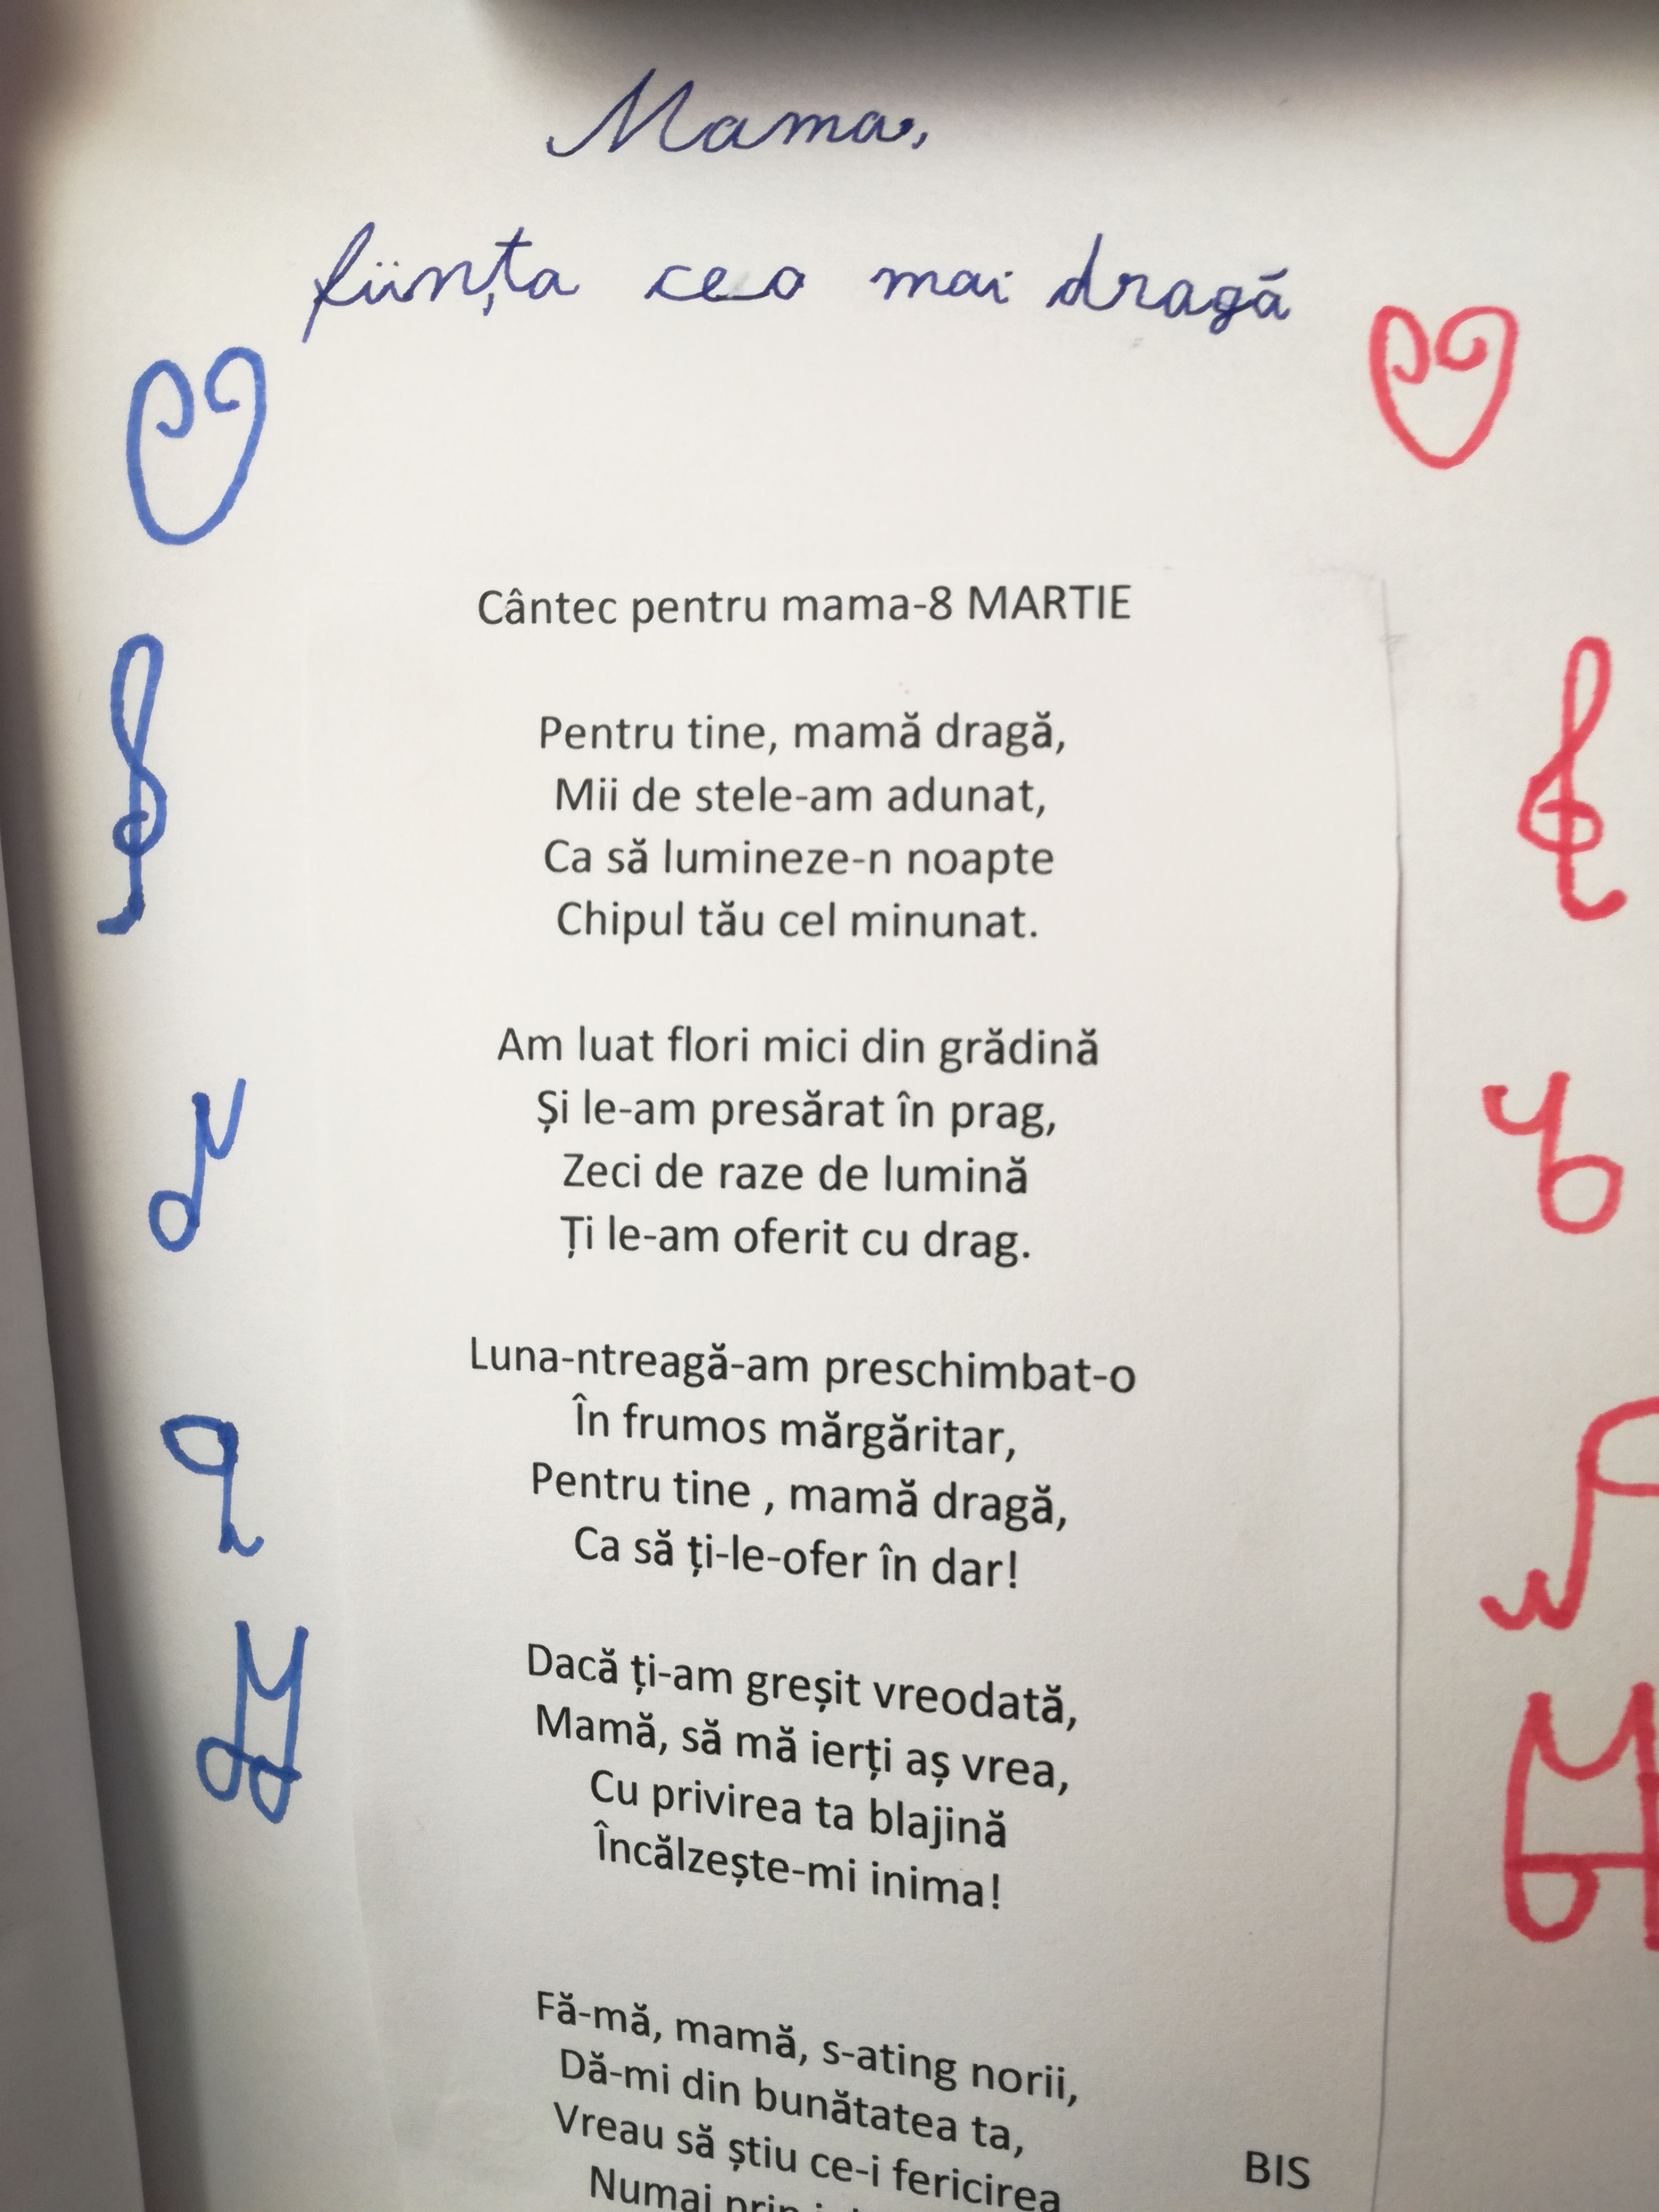 Mama,
ființa cea mai dragă
Cântec pentru mama-8 MARTIE
Pentru tine, mamă dragă,
Mii de stele-am adunat,
Ca să lumineze-n noapte
Chipul tău cel minunat.
Am luat flori mici din grădină
Și le-am presărat în prag,
Zeci de raze de lumină
Ți le-am oferit cu drag.
Luna-ntreagă-am preschimbat-o
În frumos mărgăritar,
Pentru tine , mamă dragă,
Ca să ți-le-ofer în dar!
Dacă ți-am greșit vreodată,
Mamă, să mă ierți aș vrea,
Cu privirea ta blajină
Încălzește-mi inima!
Fă-mă, mamă, s-ating norii,
Dă-mi din bunătatea ta,
Vreau să știu ce-i fericirea
BIS
Numai prin